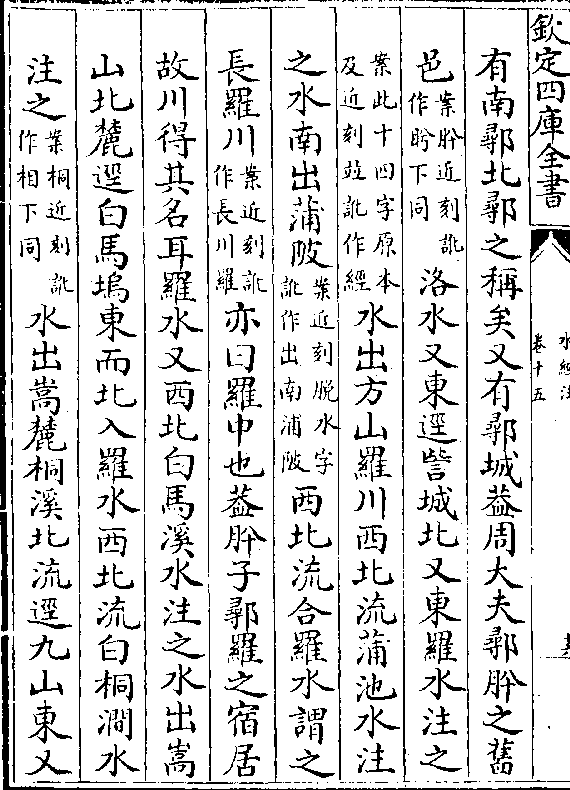 欽定四庫全書
水經注
卷十五
有南鄩北鄩之稱矣又有鄩城葢周大夫鄩肸之舊
邑案肸近刻訛作盻下同洛水又東逕訾城北又東羅水注之
案此十四字原本及近刻竝訛作經水出方山羅川西北流蒲池水注
之水南出蒲陂案近刻脱水字訛作出南浦陂西北流合羅水謂之
長羅川案近刻訛作長川羅亦曰羅中也葢肸子鄩羅之宿居
故川得其名耳羅水又西北白馬溪水注之水出嵩
山北麓逕白馬塢東而北入羅水西北流白桐澗水
注之案桐近刻訛作相下同水出嵩麓桐溪北流逕九山東又